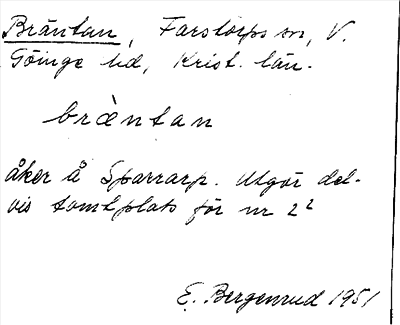 Bräntan, Farstorps sn, V.
Göinge hd, Krist. län.
bræ̀ntan
åker å Sparrarp. Utgör del-
vis tomtplats för nr 2²
E. Bergenrud 1951